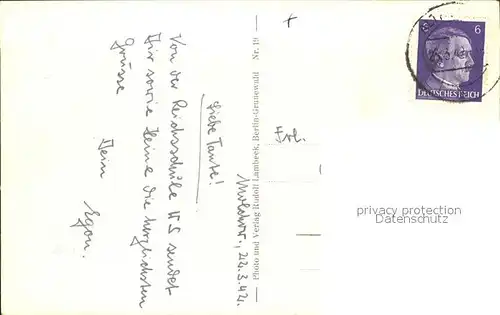 22.3.42.
Liebe Tante!
Von der Reichsschule sendet
Dir sowie Heinz die herzlichsten
Grüsse
Dein
Egon.
Photo und Verlag Rudolf Lambeck, Berlin-Grunewald Nr. 19
Frl.
6
DEUTSCHES REICH
privacy protection
Datenschutz